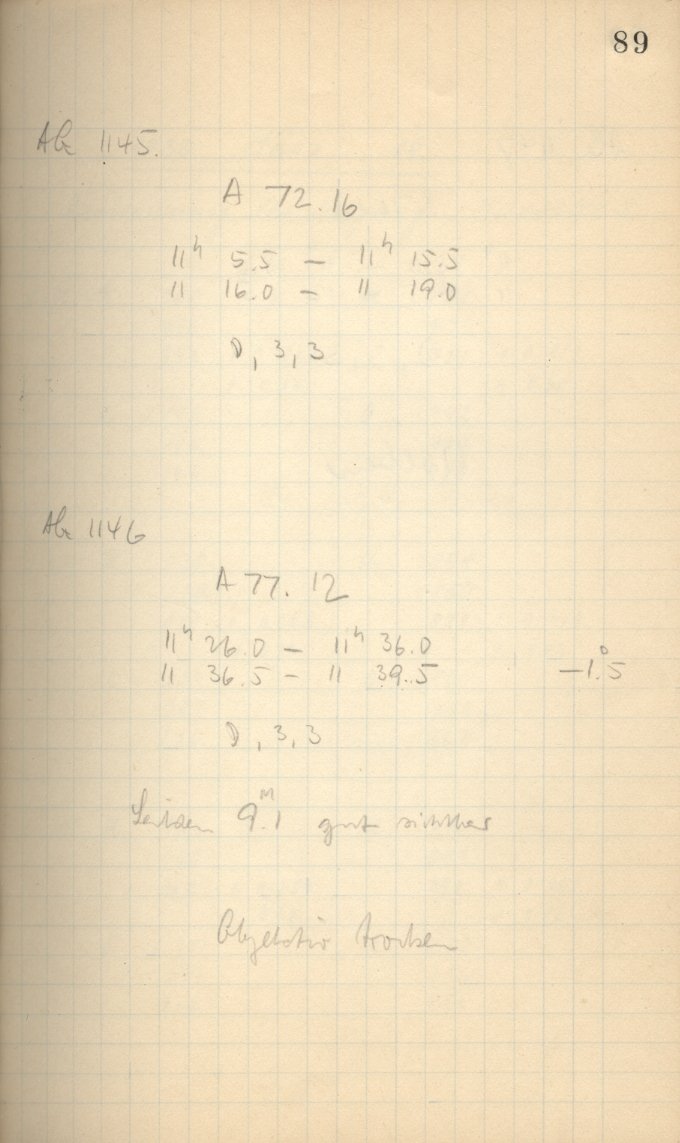 89
AG 1145.
A 72.16
11h 5.5 – 11h 15.5
11 16.0 – 11 19.0
D, 3, 3
AG 1146
A 77.12
11h 26.0 – 11h 36.0
11 36.5 – 11 39.5 –1°.5
D, 3, 3
Leiden 9M.1 gut sichtbar
Objektiv trocken